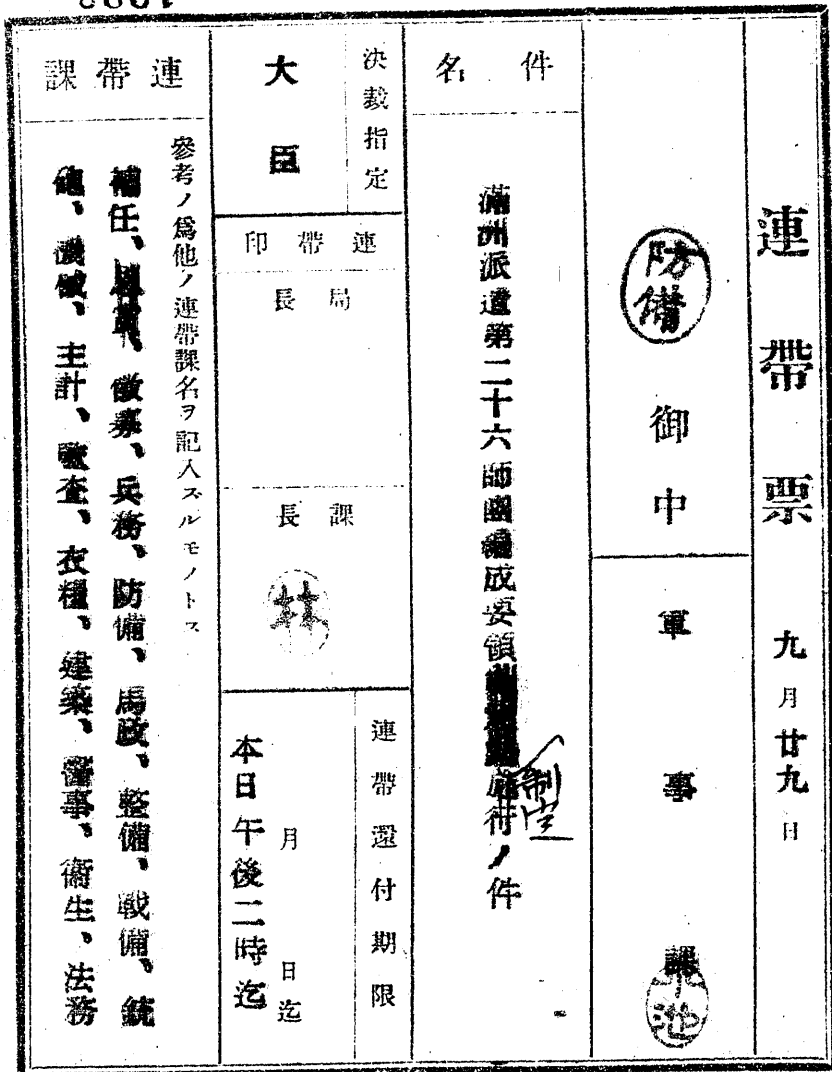 連帶票 九月廿九日
防備 御中
軍事課
件名
滿洲派遣第二十六師團編成要領
制定
ノ件
決裁指定
大臣
連帶印
局長
課長
林
連帶還付期限
月 日迄
本日午後二時迄
連帶課
參考ノ爲他ノ連帶課名ヲ記入スルモノトス
補任、徵募、兵務、防備、馬政、整備、戰備、銃
砲、機械、主計、衣糧、建築、醫事、衞生、法務